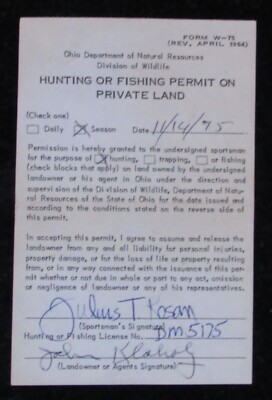 FORM W-75
(REV. APRIL 1964)
Ohio Department of Natural Resources
Division of Wildlife
HUNTING OR FISHING PERMIT ON
PRIVATE LAND
(Check one)
Daily Season Date 11/14/75
Permission is hereby granted to the undersigned sportsman
for the purpose of hunting, trapping, or fishing
(check blocks that apply) on land owned by the undersigned
landowner or his agent in Ohio under the direction and
supervision of the Division of Wildlife, Department of Natu-
ral Resources of the State of Ohio for the date issued and
according to the conditions stated on the reverse side of
this permit.
In accepting this permit, I agree to assume and release the
landowner from any and all liability for personal injuries,
property damage, or for the loss of life or property resulting
from, or in any way connected with the issuance of this per-
mit whether or not due in whole or part to any act, omission
or negligence of landowner or any of his representatives.
Julius T. Kosan
(Sportsman's Signature)
Hunting or Fishing License No. DM5175
John
(Landowner or Agents Signature)